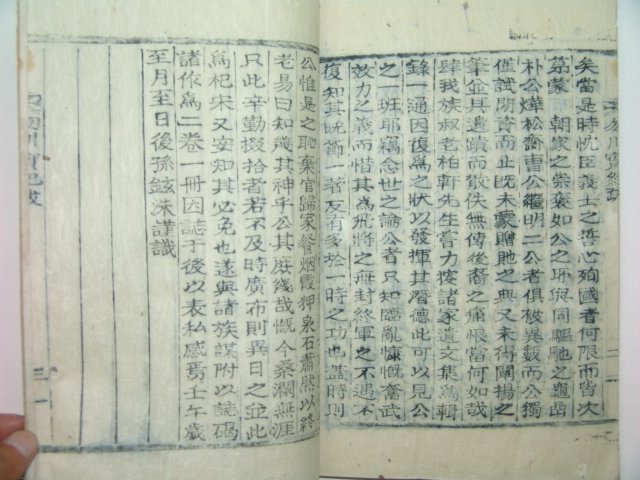 矣當是時忱臣義士之誓心殉國者何限而皆次
第蒙 朝家之崇褒如公之聯與同驅馳之龜嵒
朴公燁松齋曺公繼明二公者俱被異數而公獨
僅試閑資而止旣未蒙贈貤之典又未得闡揚之
筆並其遺蹟而散佚無傳後裔之痛恨當何如哉
肆我族叔老柏軒先生嘗力搜諸家遺文集爲輯
錄一通因復爲之狀以發揮其潛德此可以見公
之一班耶竊念世之論公者只知臨亂慷慨奮武
效力之義而惜其爲飛將之無封終軍之不遇不
復知其晩節一著友有多於一時之功也蓋時則
公惟是之恥棄官歸家餐烟霞狎泉石蕭然以終
老易曰知幾其神乎公其庶幾哉慨今桑瀾無涯
只此辛勤掇拾者若不及時廣布則異日之並此
爲杞宋又安知其必免也遂與諸族謀附以誌碣
諸作爲二卷一冊因誌于後以表私感焉壬午歲
至月至日後孫鉉洙謹識
三